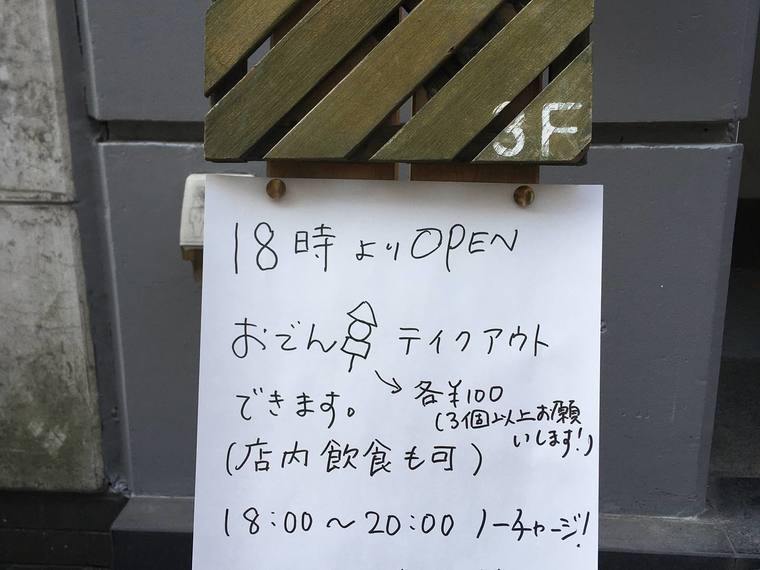 3F
18時よりOPEN
おでん テイクアウト
できます。
各¥100
(3個以上お願
いします!)
(店内飲食も可)
18:00~20:00 ノーチャージ!